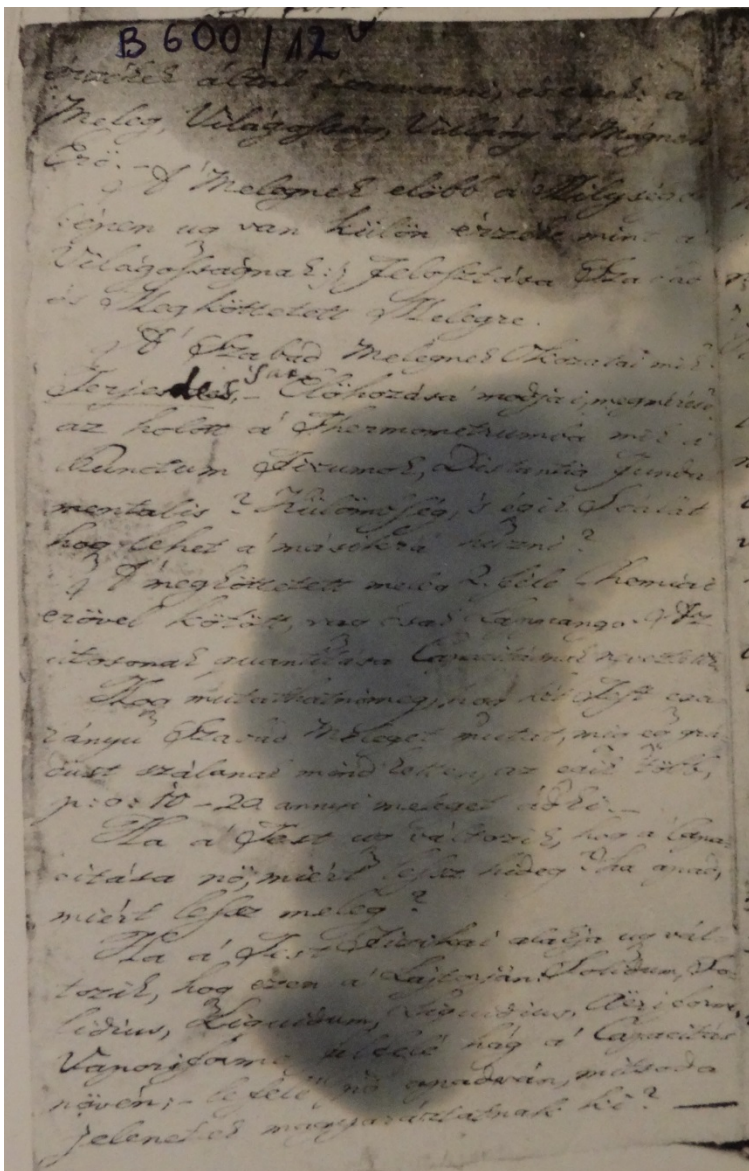 B 600/12
érzékek által észrevenni, és ezek: a
Meleg, Világosság, Villany és Mágnes
Erő; – A' Melegnek előbb a'
képen ug van külön érzéke mint a
Világosságnak; Felosztása Szabad
és Megköttetett Melegre.
A' Szabad Melegnek Okozatai mik?
Terjesztés, – Előhozása' módjai, megmérése
az holott a' Thermometrumba mik a
Punctum Fixumok, Distantia Funda
mentalis? Külömbség, 's égik Scálát
hog lehet a' másikrá húzni?
A' megköttetett meleg 2. féle Chemiai
erővel kötött, vag csak Lappango. Az
utosonak quantitása Capacitásnak neveztetik
Hog mutathatnám meg, hog két Test
arányu Szabad Meleget mutat, míg eg grá
dust szálanak mind ketten, az egik több,
p: o: 10 – 20 annyi meleget ád ki. –
Ha a' Test ug változik, hog a' Capa
citása nő, miért lessz hideg? ha apad,
miért lessz meleg?
Ha a' Test Fisikai alakja ug vál-
tozik, hog ezen a' Lajtorján: Solidum, So-
lidius, Liquidum, Liquidius, Aëriforme,
Vaporiforme felfelé hág a' Capacitás
növén; – lefelé apadván, mitsoda
Jelenetek magyaráztatnak ki? —